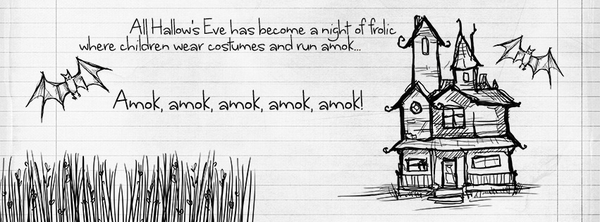 All Hallow's Eve has become a night of frolic
where children wear costumes and run amok...
Amok, amok, amok, amok, amok!